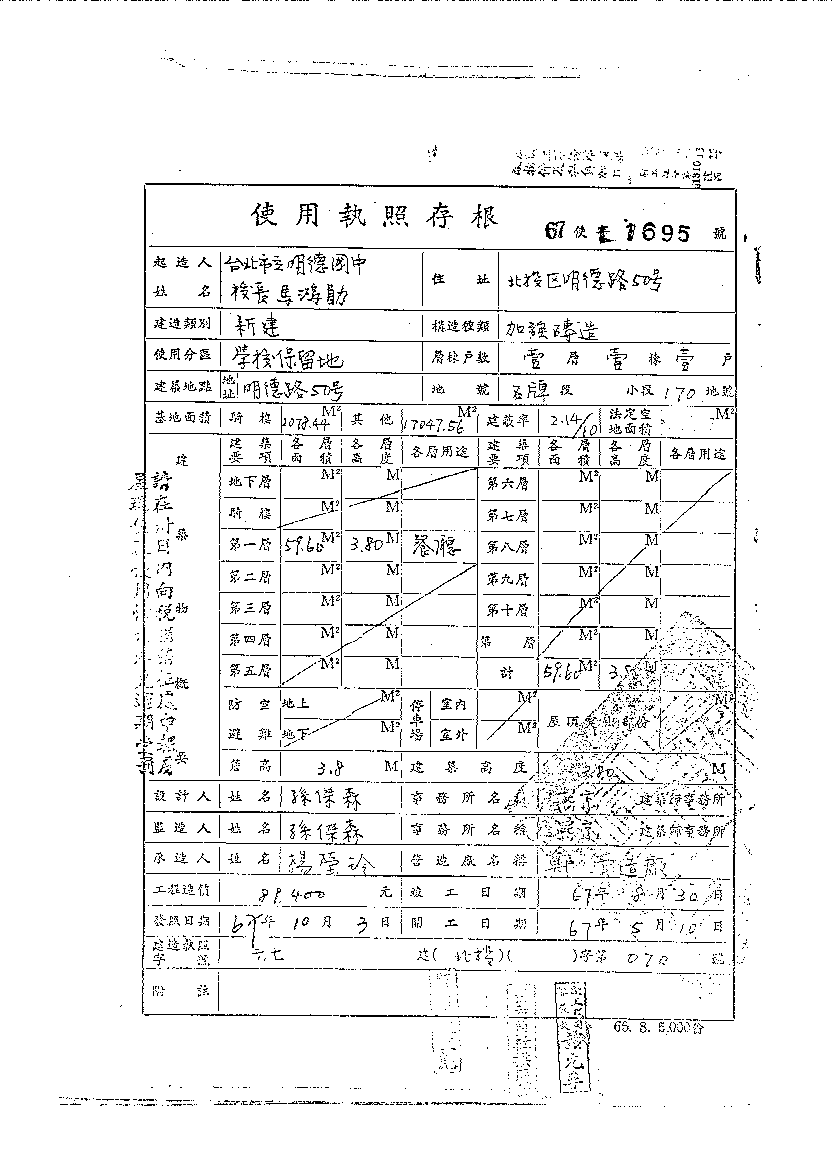 使用執照存根
67 使 1695 號
起造人姓名 台北市立明德國中 校長 馬鴻勛 住址 北投区明德路50号
建造類別 新建 構造種類 加強磚造
使用分區 學校保留地 層棟戶數 壹 層 壹 棟 壹 戶
建築地點 地址 明德路50号 地號 石牌 段 小段 170 地號
基地面積 騎樓 1078.44 M² 其他 17047.56 M² 建蔽率 2.14/10 法定空地面積 M²
建築物概要 建築要項 各層面積 各層高度 各層用途 建築要項 各層面積 各層高度 各層用途
地下層 M² M 第六層 M² M
騎樓 M² M 第七層 M² M
第一層 59.60 M² 3.80 M 餐廳 第八層 M² M
第二層 M² M 第九層 M² M
第三層 M² M 第十層 M² M
第四層 M² M 第 層 M² M
第五層 M² M 計 59.60 M² 3.80 M
防空避難 地上 M² 停車場 室內 M²
地下 M² 室外 M²
簷高 3.8 M 建築高度 3.80 M
設計人 姓名 孫傑森 事務所名稱 建築師事務所
監造人 姓名 孫傑森 事務所名稱 建築師事務所
承造人 姓名 營造廠名稱
工程造價 89,400 元 竣工日期 67年 8月 30日
發照日期 67年 10月 3日 開工日期 67年 5月 10日
建造執照字號 六七 建(北投)( )字第 070 號
附註
65. 8. 5,000份